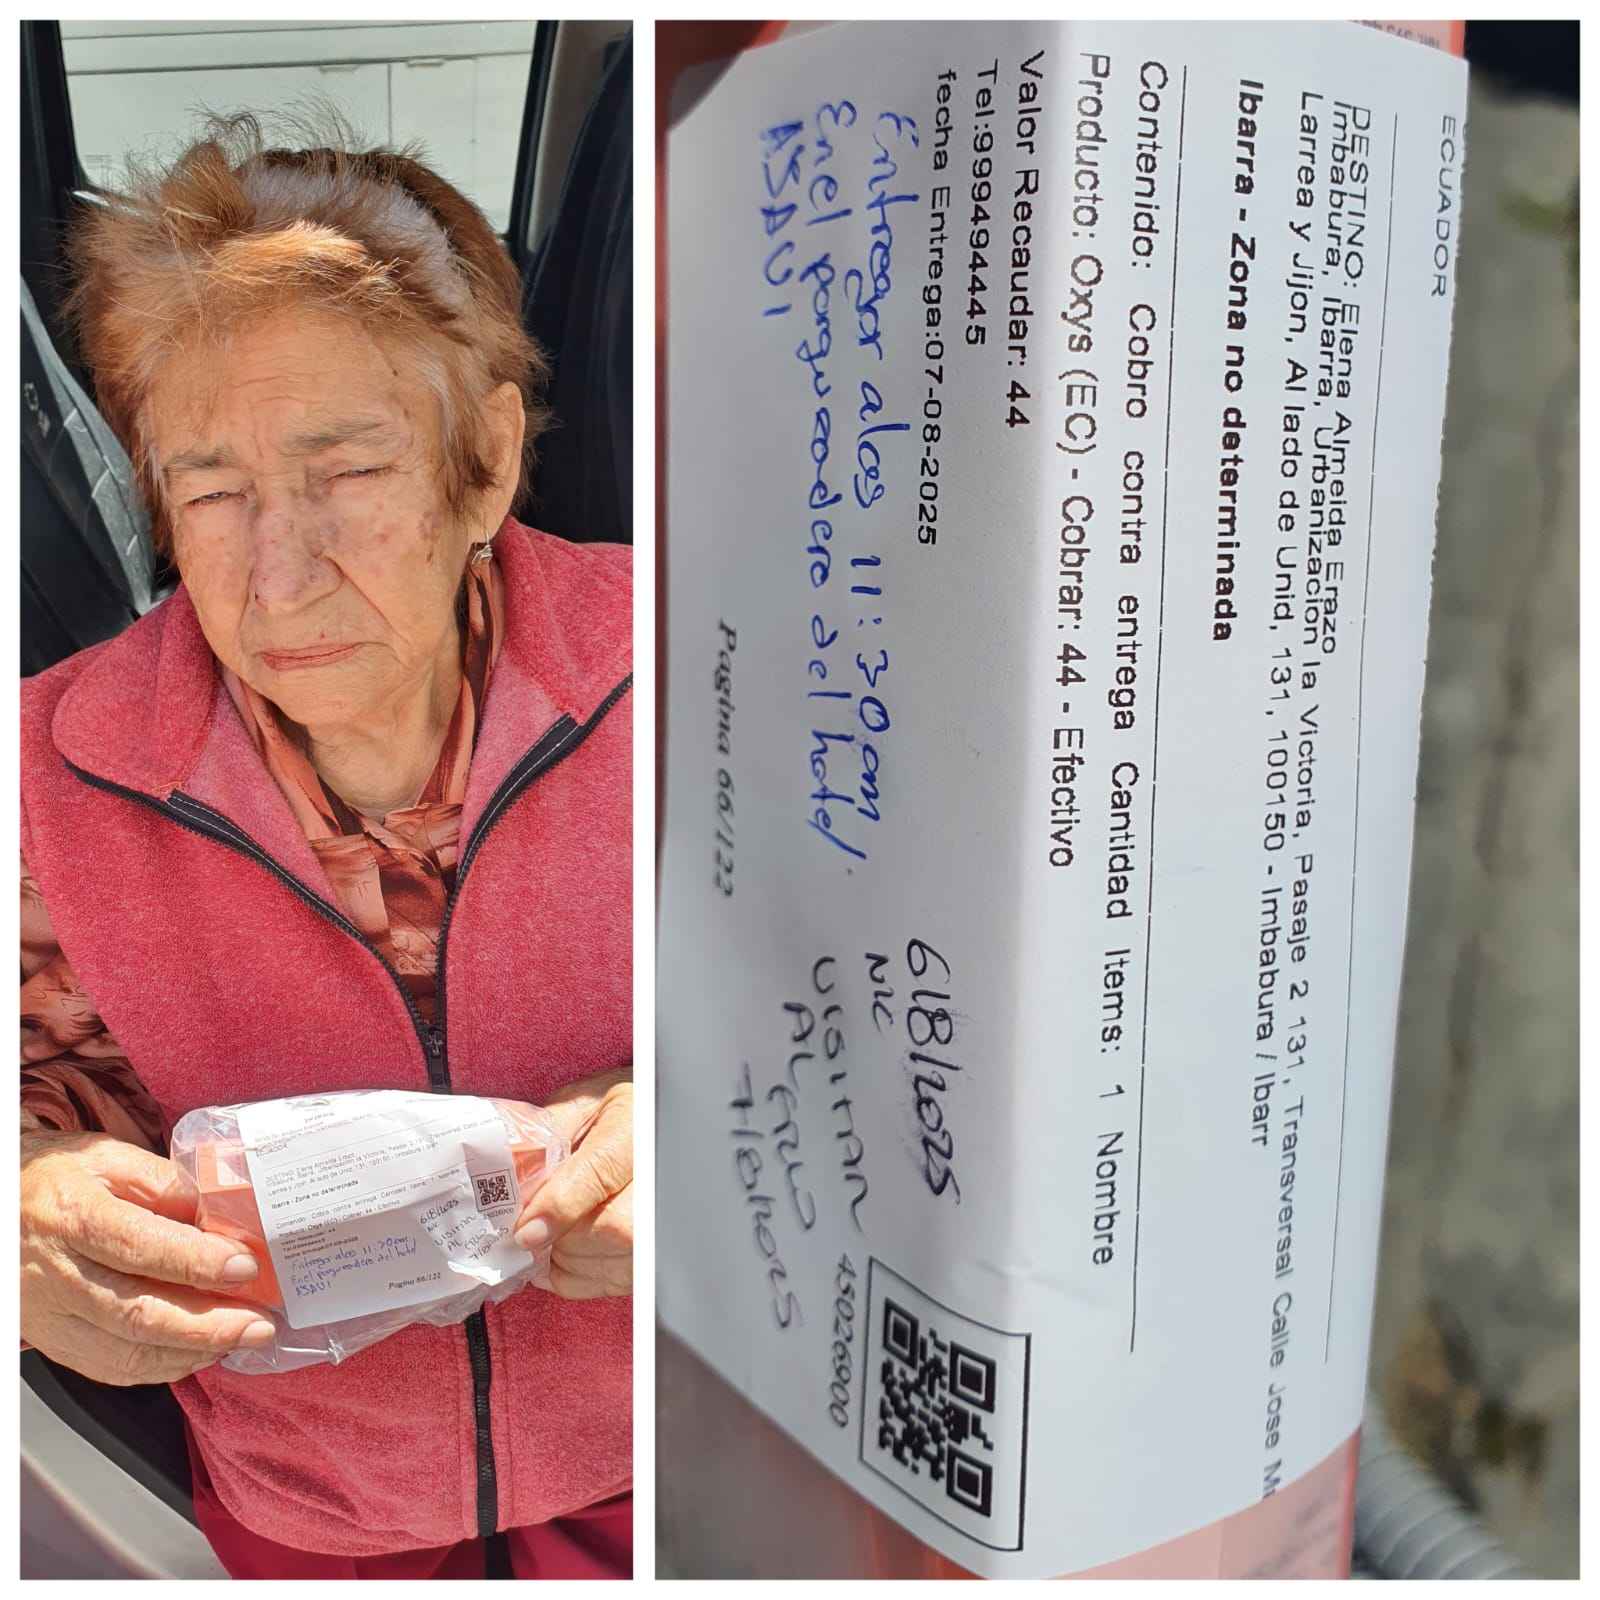 ECUADOR
DESTINO: Elena Almeida Erazo
Imbabura, Ibarra, Urbanizacion la Victoria, Pasaje 2 131, Transversal Calle Jose M
Larrea y Jijon, Al lado de Unid, 131, 100150 - Imbabura / Ibarr
Ibarra - Zona no determinada
Contenido: Cobro contra entrega Cantidad Items: 1 Nombre
Producto: Oxys (EC) - Cobrar: 44 - Efectivo
Valor Recaudar: 44
Tel:999494445
fecha Entrega:07-08-2025
Entregar alas 11:30am
En el parqueadero del hotel
ASAVI
Pagina 66/122
6/8/2025
NC
VISITAN
AL
7/8/2025
45026900